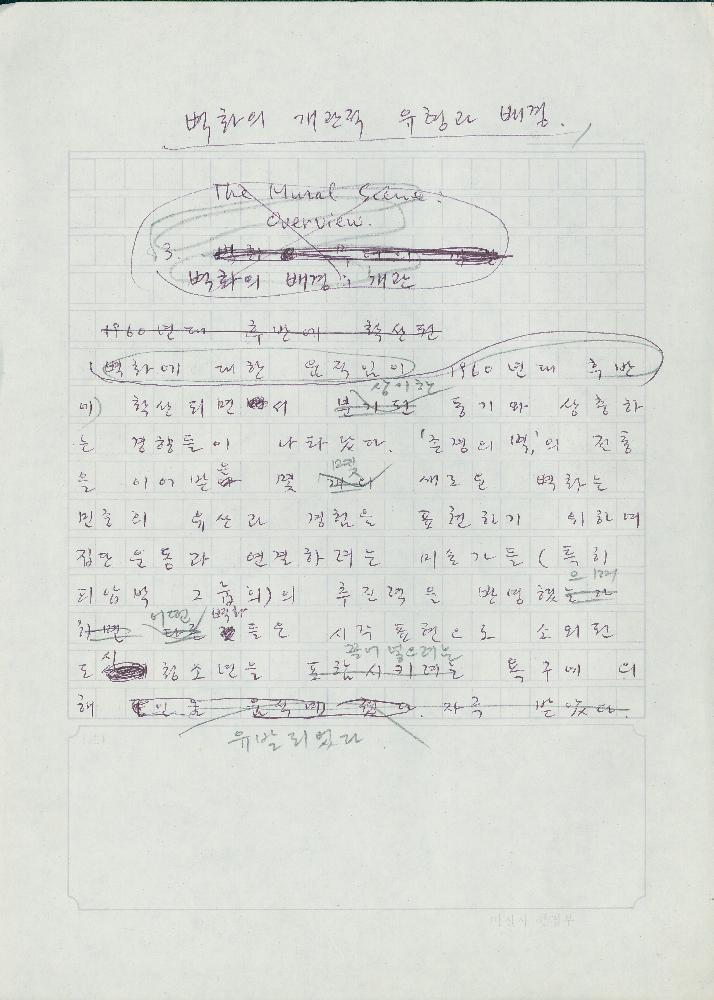 벽화의 개관적 유형과 배경.
The Mural Scene:
Overview.
3.
벽화의 배경 : 개관
1960년대 후반에 확산된
(벽화에 대한 움직임이 1960년대 후반
상이한
에) 확산되면서 분기된 동기와 상충하
는 경향들이 나타났다. '존경의 벽,'의 전통
을 이어받은 몇 개의 새로운 벽화는
민중의 유산과 경험을 표현하기 위하여
집단운동과 연결하려는 미술가들(특히
으며
피압박 그룹의)의 추진력을 반영했는가
어떤 벽화
하면 다른 들은 시각표현으로 소외된
끌어 넣으려는
도시 청소년을 포함시키려는 욕구에 의
해 자극 받았다.
유발되었다
미진사 편집부